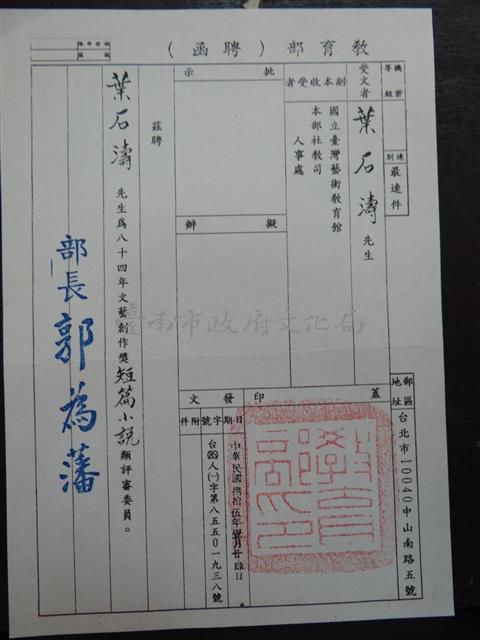 教育部（聘函）
檔號
保存年限
機密等級
速別
最速件
郵區地址
台北市10040中山南路五號
受文者
葉石濤先生
副本收受者
國立臺灣藝術教育館
本部社教司
人事處
批示
擬辦
蓋印
發文
日期
字號
附件
中華民國捌拾伍年壹月廿肆日
台(85)人(一)字第八五五0一九三八號
茲聘
葉石濤先生為八十四年文藝創作獎短篇小說類評審委員。
部長郭為藩
臺南市政府文化局